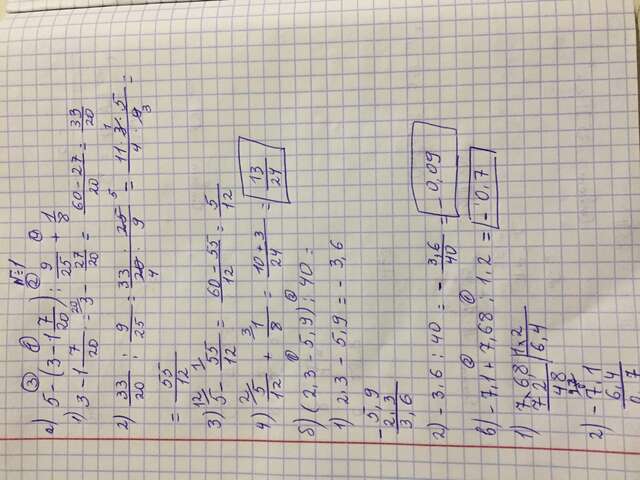 №1
а) 5 - (3 - 1 7/20) : 9/25 + 1/8
1) 3 - 1 7/20 = 3 - 27/20 = (60 - 27)/20 = 33/20
2) 33/20 : 9/25 = (33 · 25)/(20 · 9) = (11 · 3 · 5)/(4 · 9) =
= 55/12
3) 5 - 55/12 = (60 - 55)/12 = 5/12
4) 5/12 + 1/8 = (10 + 3)/24 = 13/24
б) (2,3 - 5,9) : 40 =
1) 2,3 - 5,9 = - 3,6
- 5,9
2,3
3,6
2) - 3,6 : 40 = - 3,6/40 = - 0,09
в) - 7,1 + 7,68 : 1,2 = - 0,7
1) 7,68 | 1,2
7 2 | 6,4
48
2) - 7,1
6,4
0,7